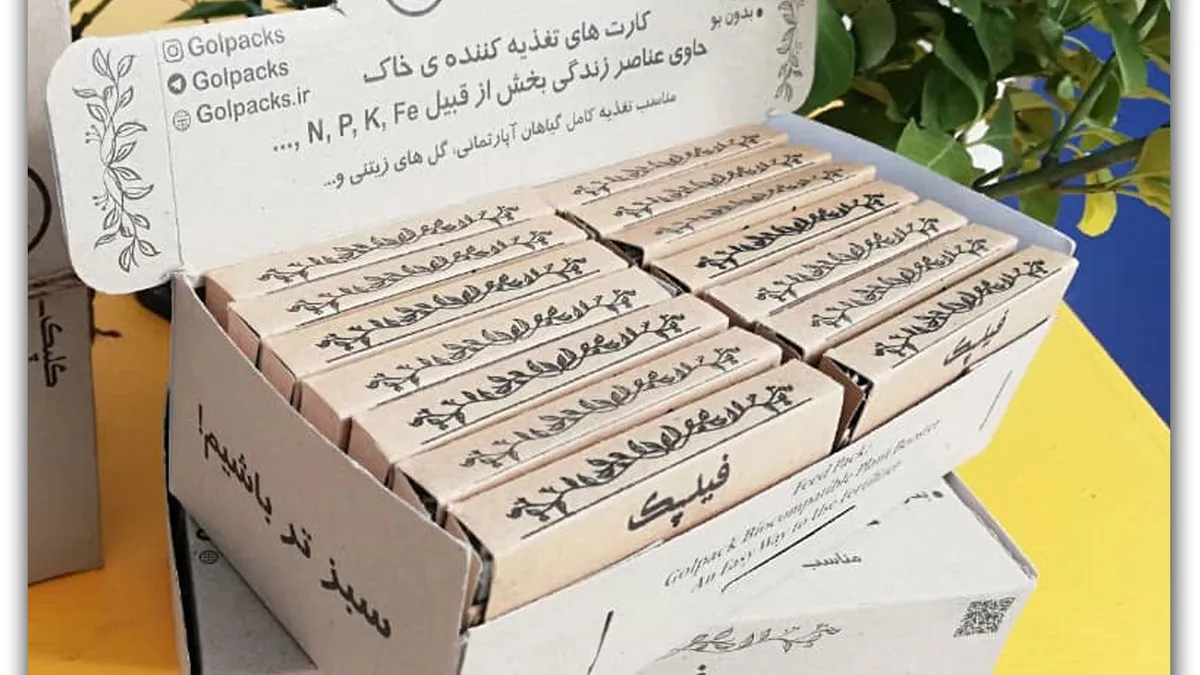 Golpacks
Golpacks
Golpacks.ir
بدون بو
کارت های تغذیه کننده ی خاک
حاوی عناصر زندگی بخش از قبیل N, P, K, Fe ,...
مناسب تغذیه کامل گیاهان آپارتمانی، گل های زینتی و...
فیلپک
فیلپک
سبز تر باشیم!
Feed Pack:
Golpack Biocompatible Plant Booster
An Easy Way to the Fertilizer
مناسب